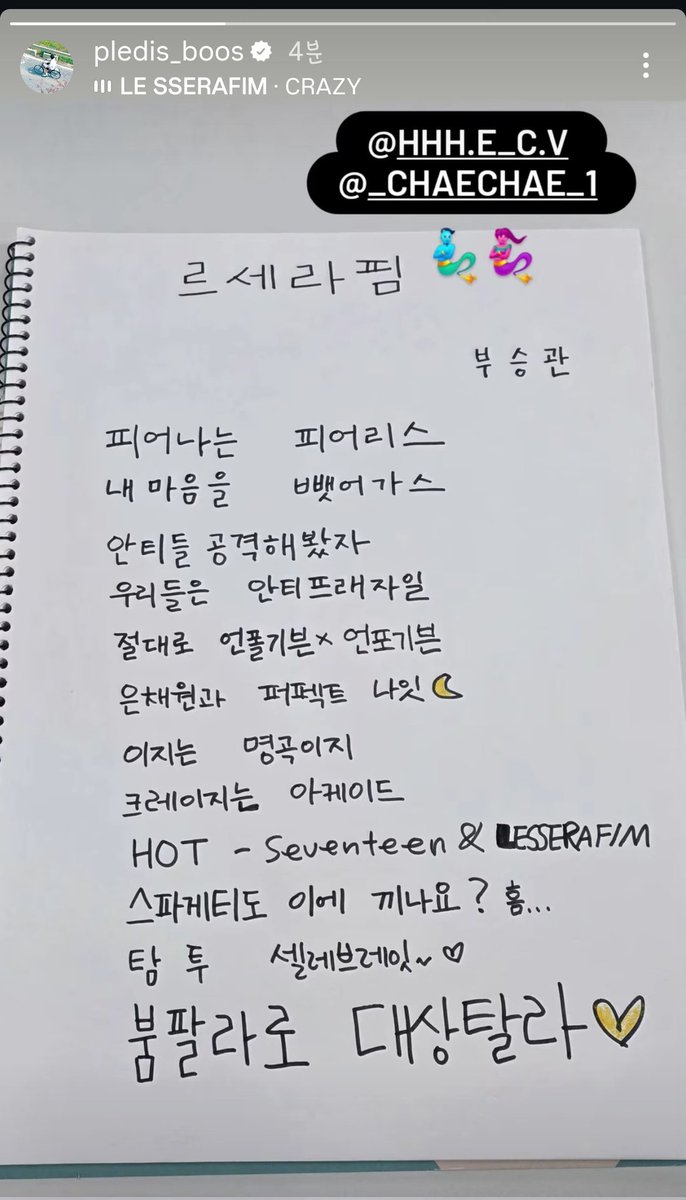 pledis_boos 4분
LE SSERAFIM · CRAZY
@HHH.E_C.V
@_CHAECHAE_1
르세라핌
부승관
피어나는 피어리스
내 마음을 뺏어가스
안티들 공격해봤자
우리들은 안티프래자일
절대로 언폴기븐× 언포기븐
은채원과 퍼펙트 나잇
이지는 명곡이지
크레이지는 아케이드
HOT - Seventeen & LESSERAFIM
스파게티도 이에 끼나요? 흠...
탐 투 셀레브레잇~ ♡
붐팔라로 대상탈라